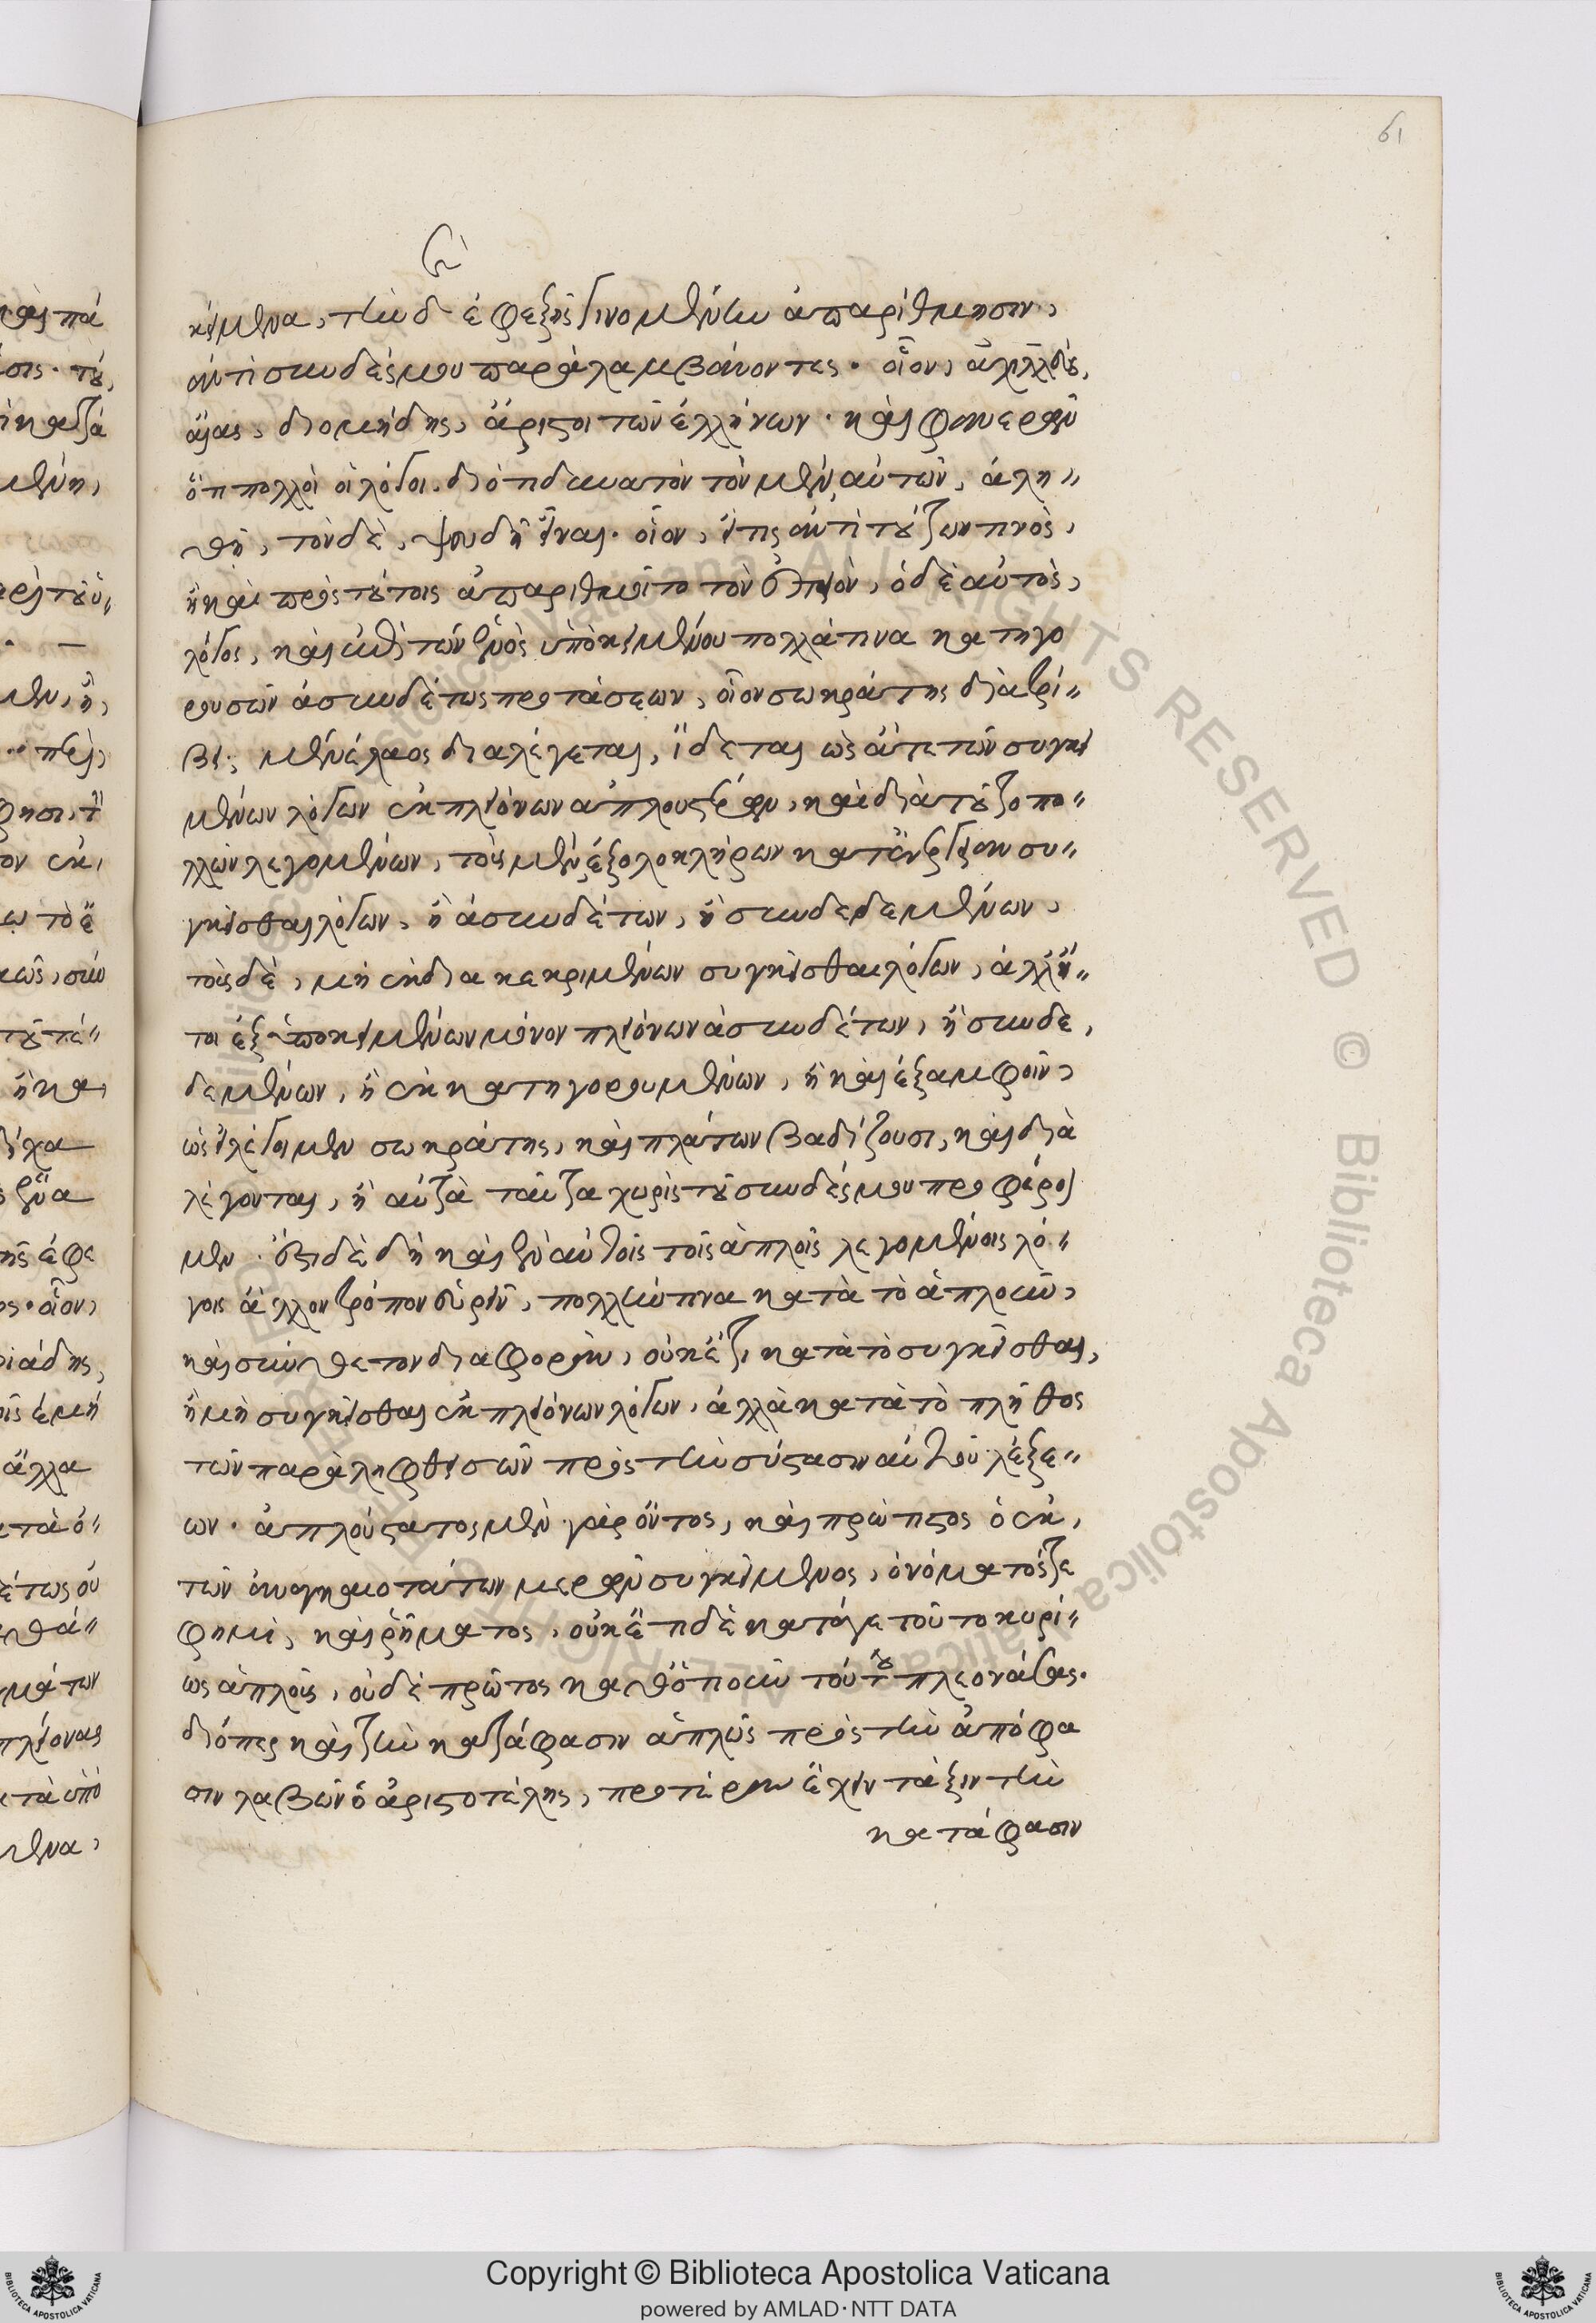 61
κείμενα, τὴν δ' ἐφεξῆς γινομένην ἀπαρίθμησιν,
ἀντὶ συνδέσμου παραλαμβάνοντες. οἷον, ἀχιλλεὺς,
αἴας, διομήδης, ἄριστοι τῶν ἑλλήνων. καὶ φανερὸν
ὅτι πολλοὶ οἱ λόγοι. διότι δυνατὸν τὸν μὲν αὐτῶν, ἀλη"
θῆ, τὸν δὲ, ψευδῆ εἶναι. οἷον, εἴ τις ἀντὶ τούτων τινὸς,
ἢ καὶ πρὸς τούτοις ἀπαριθμοῖτο τὸν, ὁ δὲ αὐτὸς,
λόγος, καὶ ἐπὶ τῶν ἑνὸς ὑποκειμένου πολλά τινα κατηγο
ρουσῶν ἀσυνδέτως προτάσεων, οἷον σωκράτης διατρί"
βει, μενέλαος διαλέγεται, ἴδεται ὡς ἅτε τῶν συγκει
μένων λόγων ἐκ πλειόνων ἁπλουστέρων, καὶ διὰ τοῦτο πο"
λλῶν λεγομένων, τοὺς μὲν, ἐξ ὁλοκλήρων κατ' ἐνέργειαν συ"
γκεῖσθαι λόγων, ἢ ἀσυνδέτων, ἢ συνδεδεμένων,
τοὺς δὲ, μὴ ἐκ διακεκριμένων συγκεῖσθαι λόγων, ἀλλ' ἤ"
τοι ἐξ ὑποκειμένων μόνον πλειόνων ἀσυνδέτων, ἢ συνδε,
δεμένων, ἢ ἐκ κατηγορουμένων, ἢ καὶ ἐξ ἀμφοῖν,
ὡς εἰ λέγοιμεν σωκράτης, καὶ πλάτων βαδίζουσι, καὶ διὰ
λέγονται, ἢ αὐτὰ ταῦτα χωρὶς τοῦ συνδέσμου προφέροι
μεν. ἔστι δὲ δὴ καὶ ἐν αὐτοῖς τοῖς ἁπλοῖς λεγομένοις λό"
γοις ἄλλον τρόπον εὑρεῖν, πολλήν τινα κατὰ τὸ ἁπλοῦν,
καὶ σύνθετον διαφορὰν, οὐκέτι κατὰ τὸ συγκεῖσθαι,
ἢ μὴ συγκεῖσθαι ἐκ πλειόνων λόγων, ἀλλὰ κατὰ τὸ πλῆθος
τῶν παραληφθεισῶν πρὸς τὴν σύστασιν αὐτοῦ λέξε"
ων. ἁπλούστατος μὲν γὰρ ὄντος, καὶ πρώτιστος ὁ ἐκ,
τῶν ἀναγκαιοτάτων μερῶν συγκείμενος, ὀνόματός τε
φημὶ, καὶ ῥήματος, οὐκέτι δὲ κατάγε τοῦτο κυρί"
ως ἁπλοῖς, οὐδὲ πρῶτος καθ' ὅποιοῦν τούτου πλεονάσας.
διόπερ καὶ τὴν κατάφασιν ἁπλῶς πρὸς τὴν ἀπόφα
σιν λαβὼν ὁ ἀριστοτέλης, προτέραν ἔχειν τάξιν τὴν
κατάφασιν
Copyright © Biblioteca Apostolica Vaticana
powered by AMLAD·NTT DATA